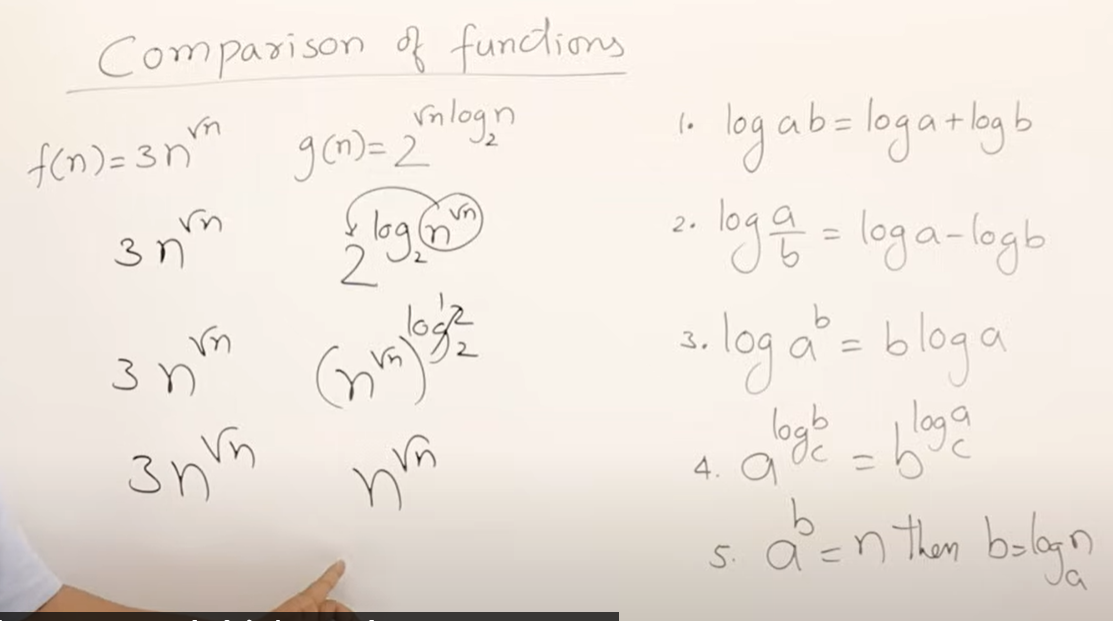 Comparison of functions
f(n) = 3n^√n   g(n) = 2^(√n log₂n)
3n^√n   2^(log₂(n^√n))
3n^√n   (n^√n)^(log₂2) 1
3n^√n   n^√n
1. log ab = log a + log b
2. log a/b = log a - log b
3. log a^b = b log a
4. a^(log_c b) = b^(log_c a)
5. a^b = n then b = log_a n